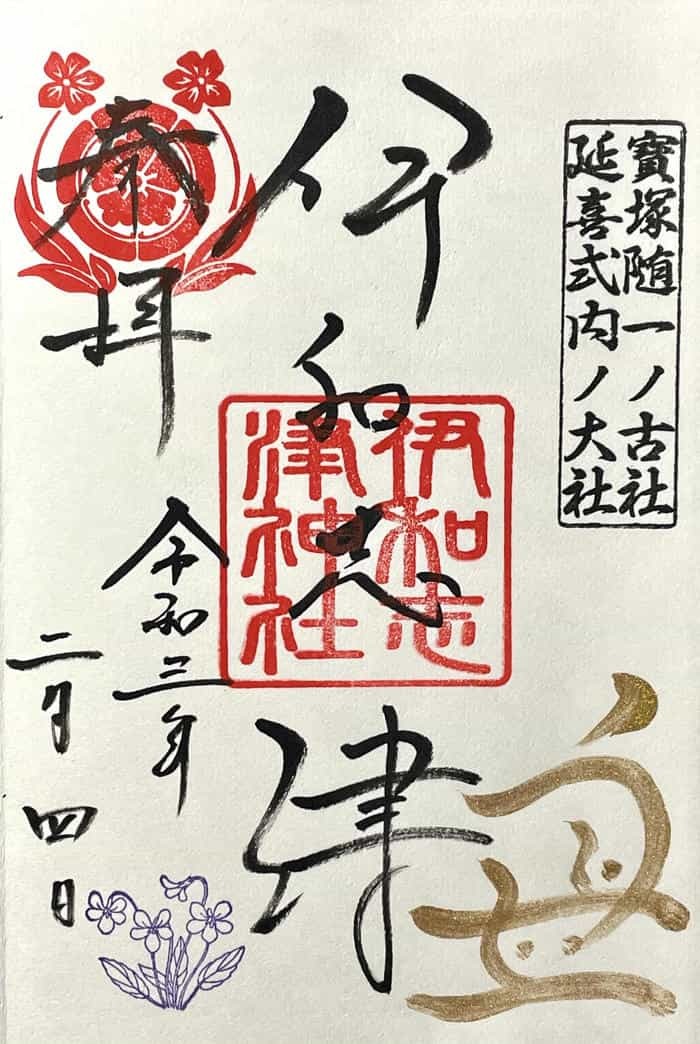 寶塚随一ノ古社
延喜式内ノ大社
丑
伊和志津
伊和志
津神社
奉拝
令和三年
二月四日